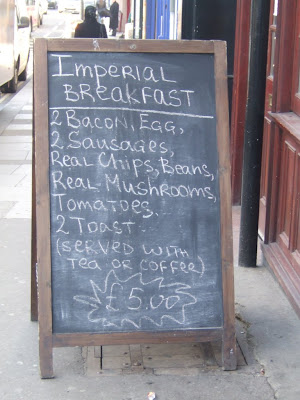 Imperial
Breakfast
2 Bacon, Egg,
2 Sausages,
Real Chips, Beans,
Real Mushrooms,
Tomatoes,
2 Toast.
(Served with
Tea or Coffee)
£5.00